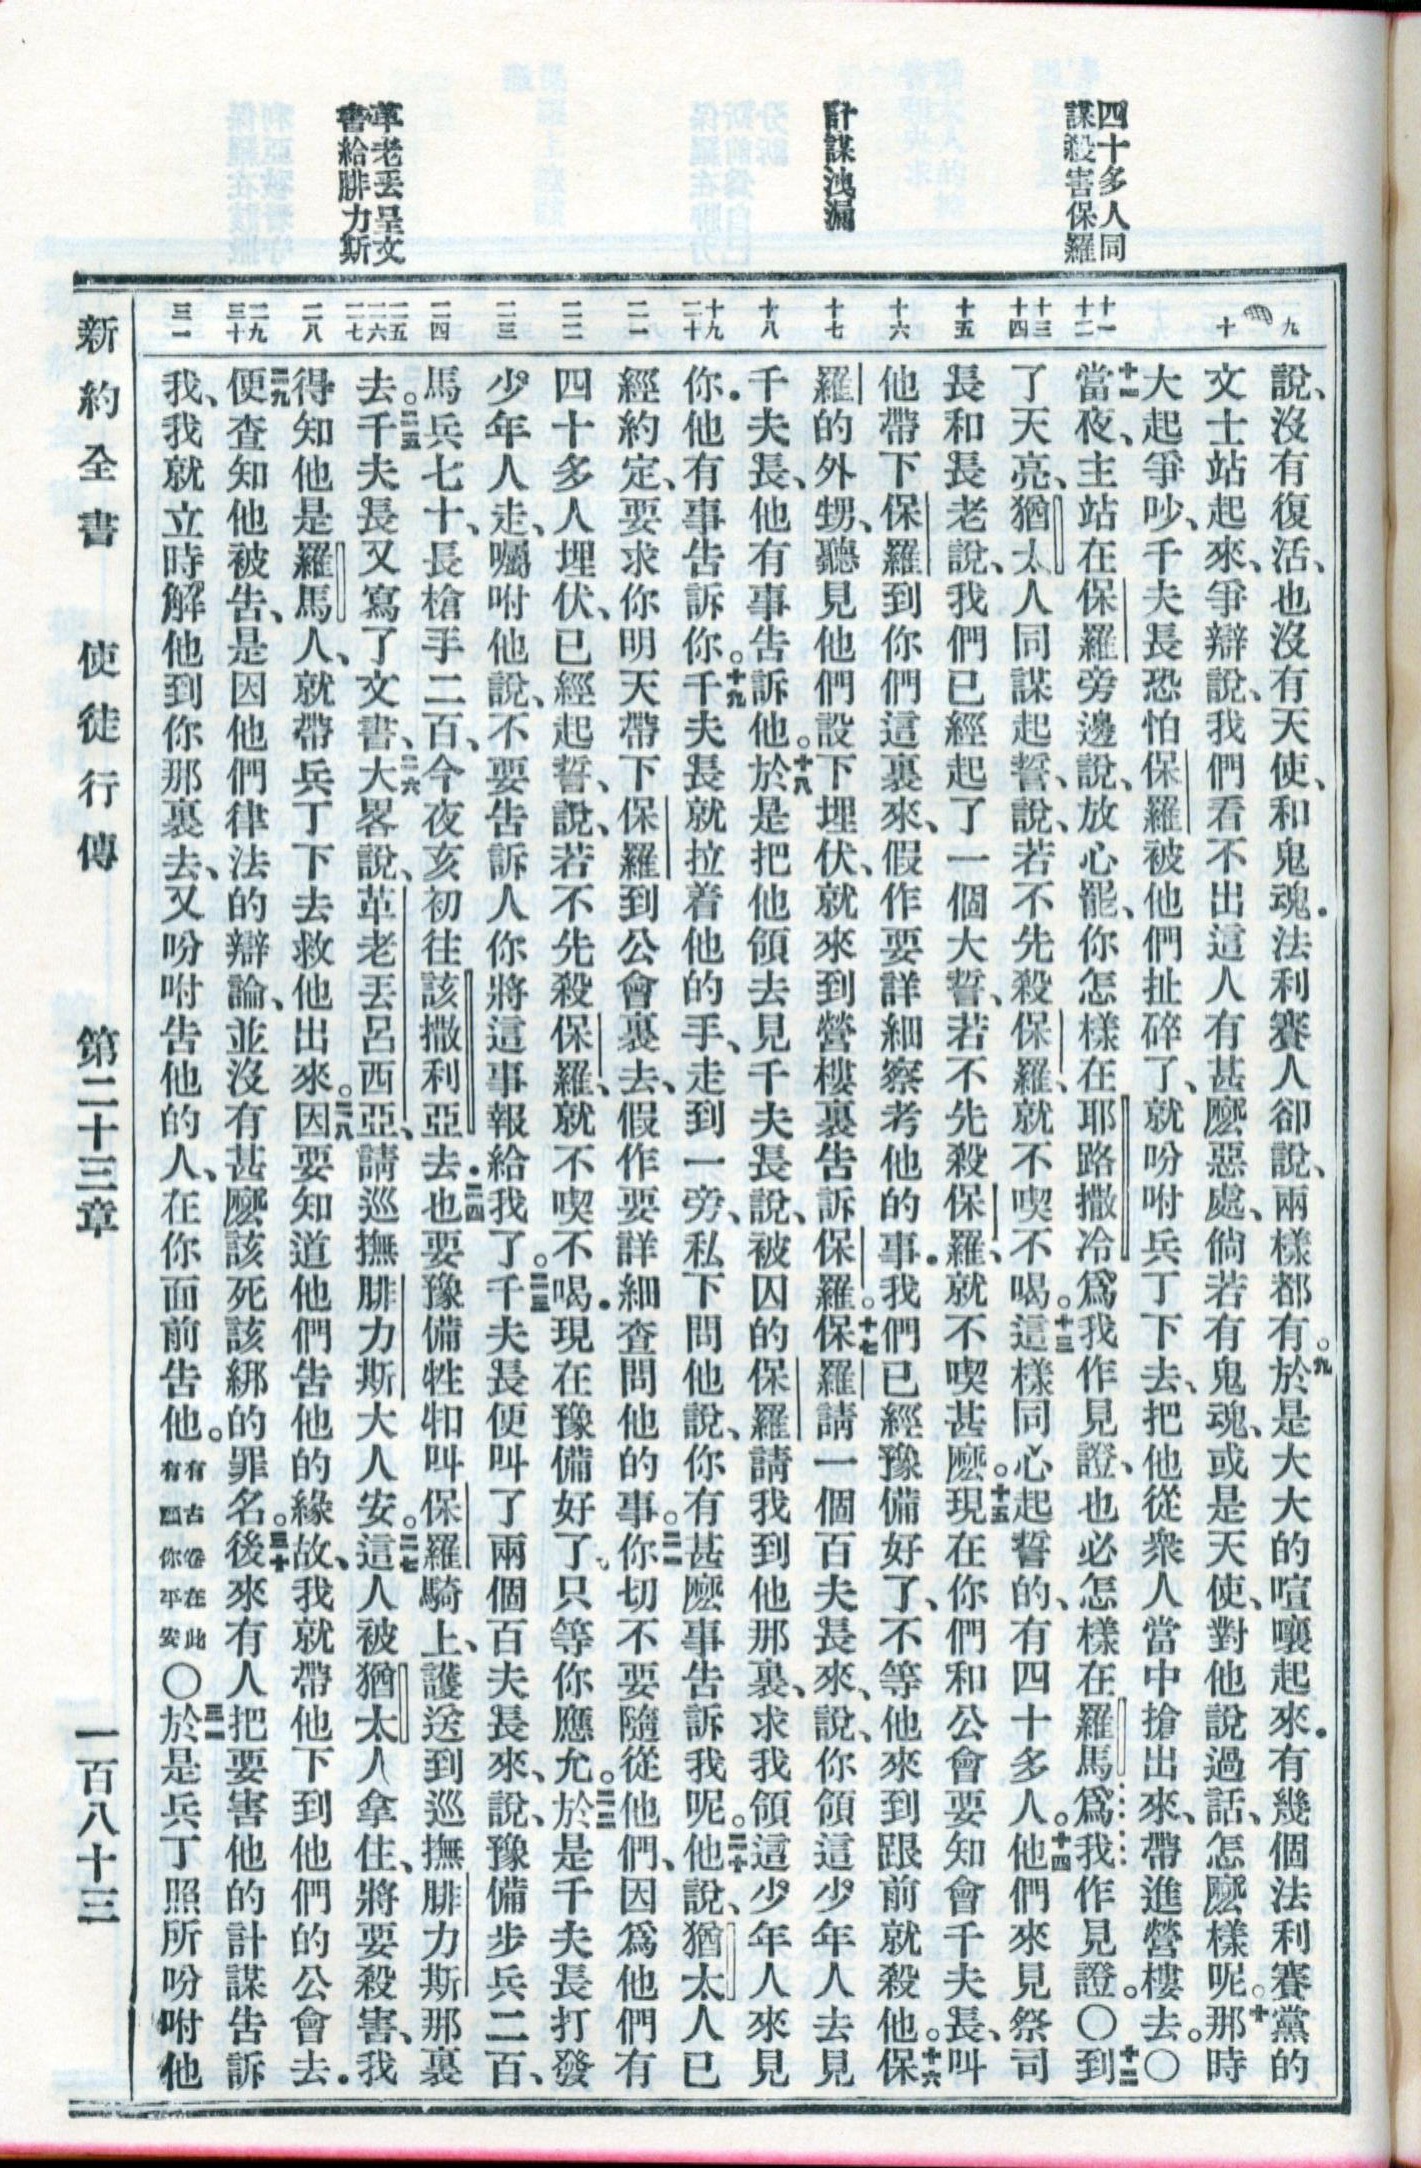 四十多人同
謀殺害保羅
計謀洩漏
革老丟呈文
書給腓力斯
九
十
十一
十二
十三
十四
十五
十六
十七
十八
十九
二十
二一
二二
二三
二四
二五
二六
二七
二八
二九
三十
三一
說、沒有復活、也沒有天使、和鬼魂．法利賽人卻說、兩樣都有。九於是大大的喧嚷起來．有幾個法利賽黨的
文士站起來、爭辯說、我們看不出這人有甚麼惡處、倘若有鬼魂、或是天使、對他說過話、怎麼樣呢。十那時
大起爭吵、千夫長恐怕保羅被他們扯碎了、就吩咐兵丁下去、把他從衆人當中搶出來、帶進營樓去。〇
十一當夜、主站在保羅旁邊說、放心罷、你怎樣在耶路撒冷爲我作見證、也必怎樣在羅馬爲我作見證。〇十二到
了天亮、猶太人同謀起誓、說、若不先殺保羅、就不喫不喝。十三這樣同心起誓的、有四十多人。十四他們來見祭司
長和長老說、我們已經起了一個大誓、若不先殺保羅、就不喫甚麼。十五現在你們和公會要知會千夫長、叫
他帶下保羅到你們這裏來、假作要詳細察考他的事．我們已經豫備好了、不等他來到跟前就殺他。十六保
羅的外甥、聽見他們設下埋伏、就來到營樓裏告訴保羅。十七保羅請一個百夫長來、說、你領這少年人去見
千夫長、他有事告訴他。十八於是把他領去見千夫長、說、被囚的保羅請我到他那裏、求我領這少年人來見
你．他有事告訴你。十九千夫長就拉着他的手、走到一旁、私下問他說、你有甚麼事告訴我呢。二十他說、猶太人已
經約定、要求你明天帶下保羅到公會裏去、假作要詳細查問他的事。二一你切不要隨從他們、因爲他們有
四十多人埋伏、已經起誓、說、若不先殺保羅、就不喫不喝．現在豫備好了、只等你應允。二二於是千夫長打發
少年人走、囑咐他說、不要告訴人你將這事報給我了。二三千夫長便叫了兩個百夫長來、說、豫備步兵二百、
馬兵七十、長槍手二百、今夜亥初往該撒利亞去．二四也要豫備牲口叫保羅騎上、護送到巡撫腓力斯那裏
去。二五千夫長又寫了文書、大畧說、二六革老丟呂西亞、請巡撫腓力斯大人安。二七這人被猶太人拿住、將要殺害、我
得知他是羅馬人、就帶兵丁下去救他出來。二八因要知道他們告他的緣故、我就帶他下到他們的公會去．
二九便查知他被告、是因他們律法的辯論、並沒有甚麼該死該綁的罪名。三十後來有人把要害他的計謀告訴
我、我就立時解他到你那裏去、又吩咐告他的人、在你面前告他。有古卷在此有願你平安〇三一於是兵丁照所吩咐他
新約全書 使徒行傳 第二十三章 一百八十三